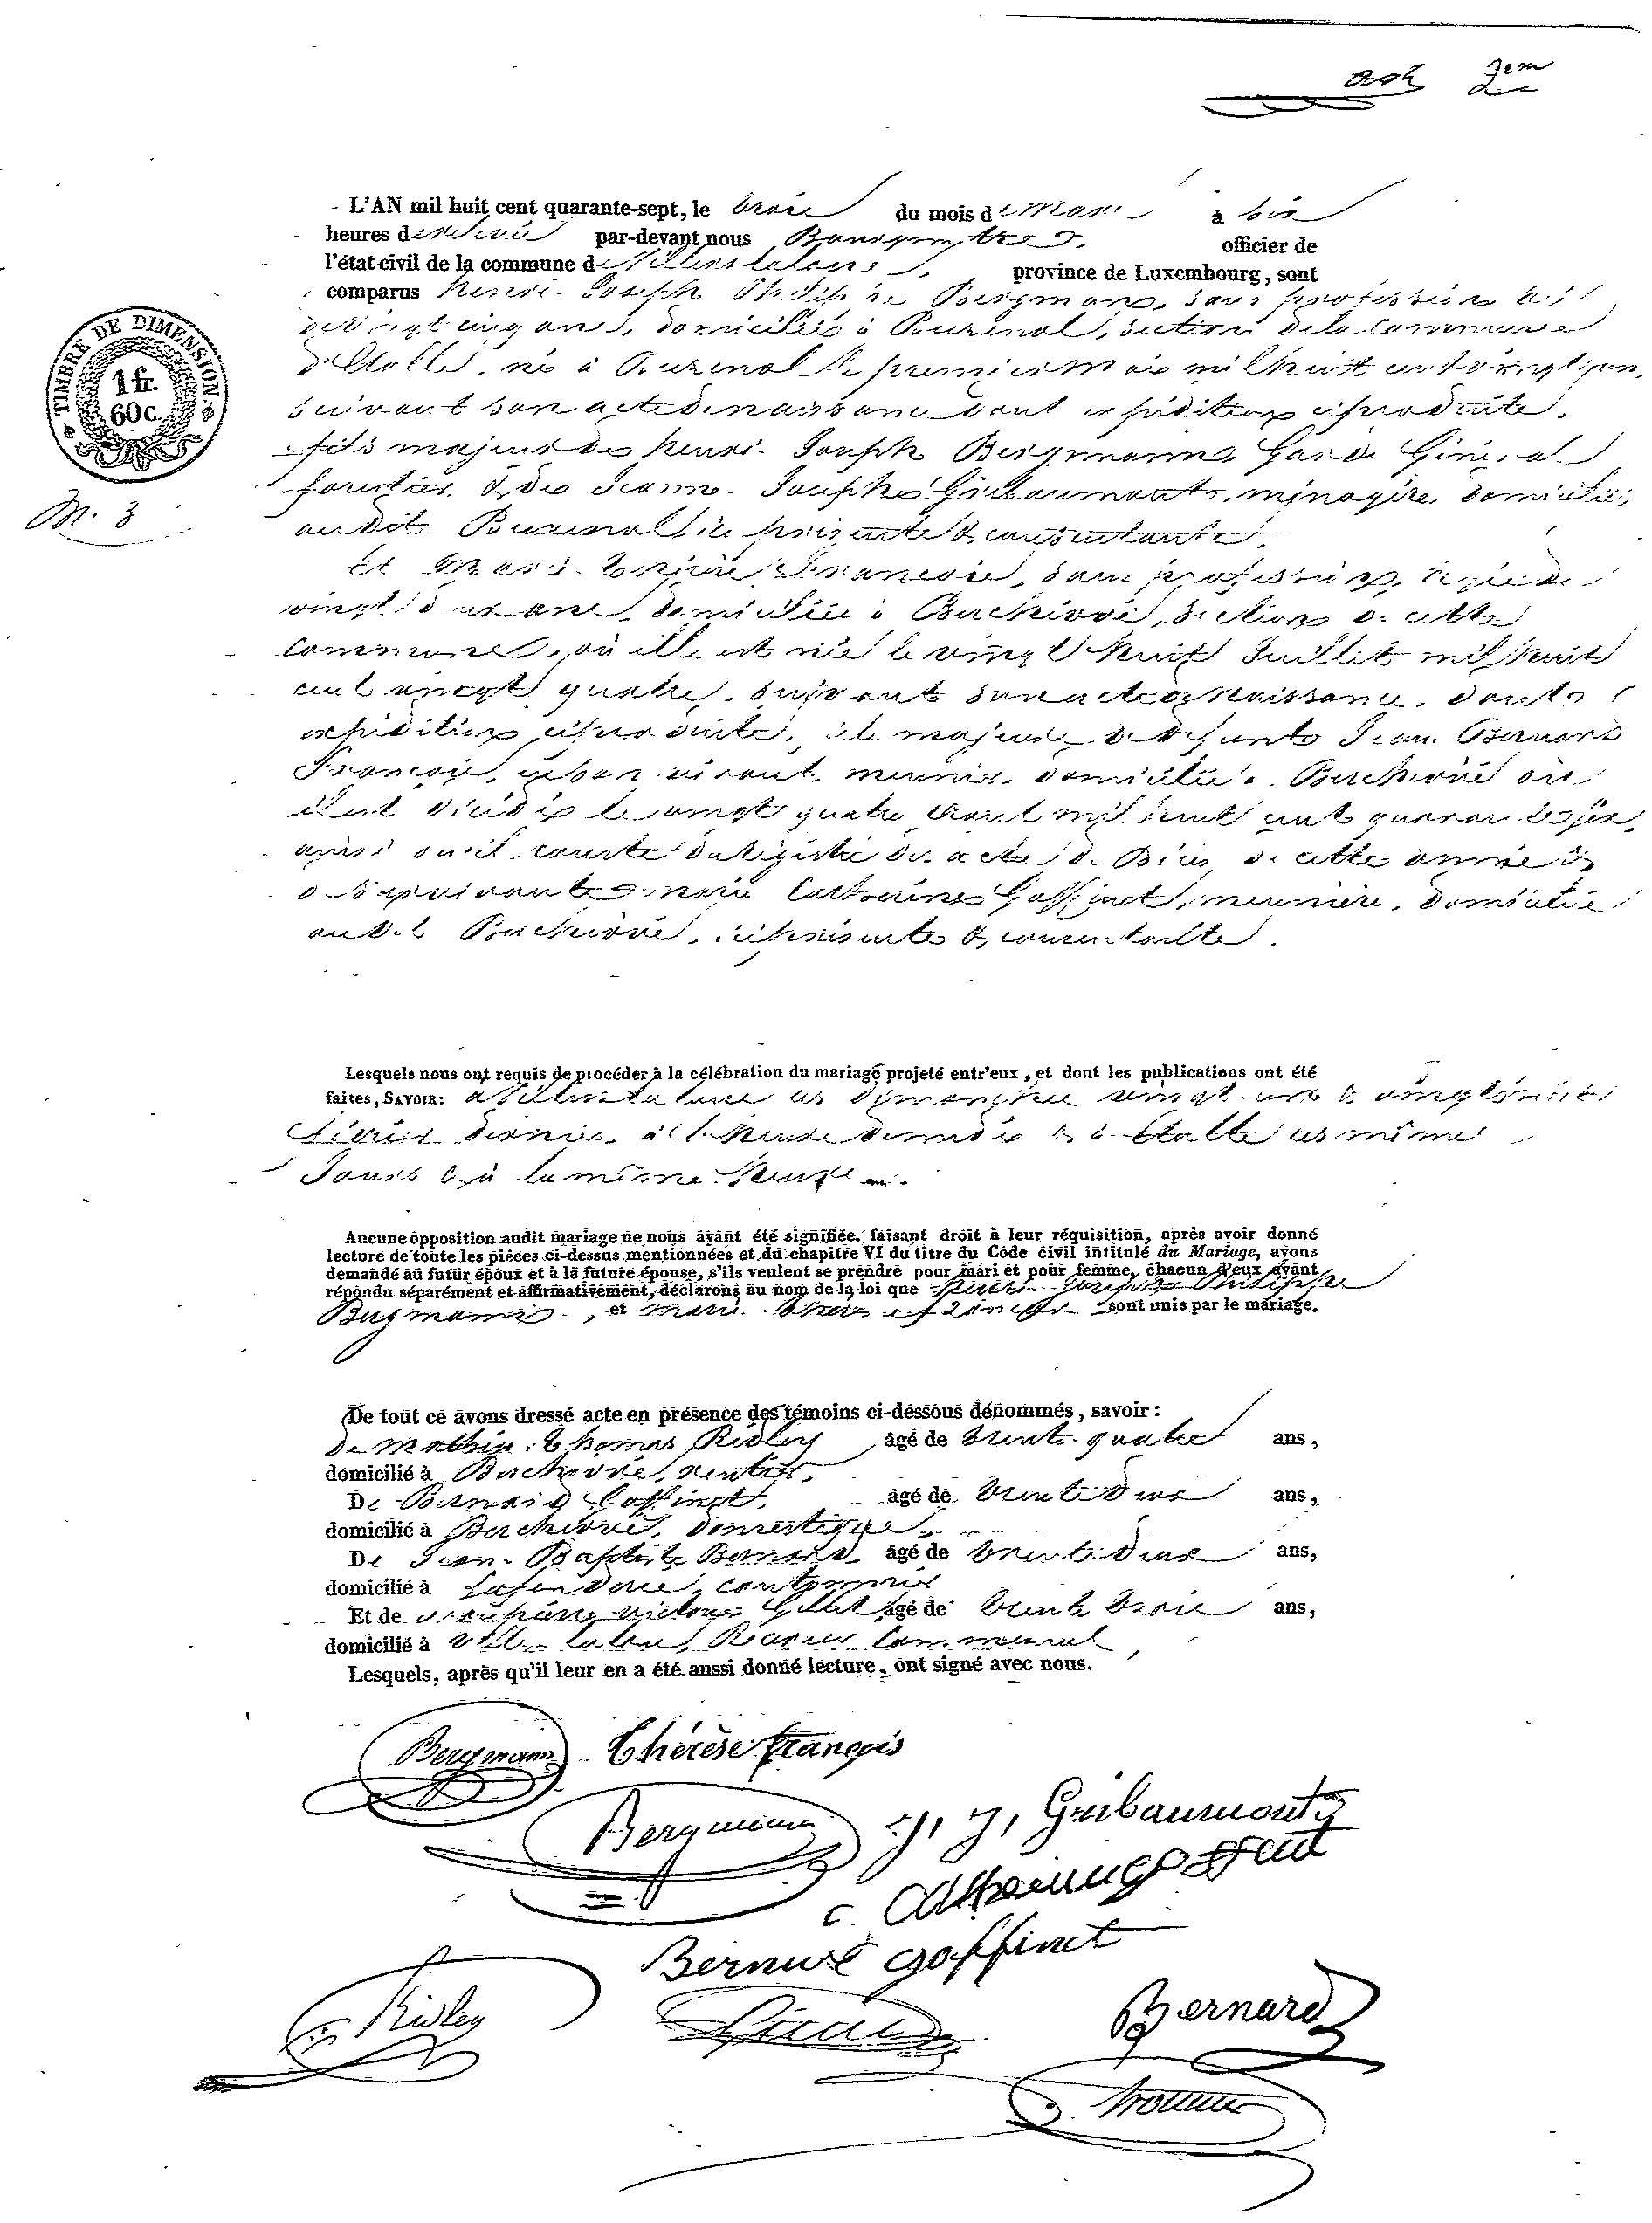 L'AN mil huit cent quarante-sept, le trois du mois de Mars à six
heures de relevée par-devant nous officier de
l'état civil de la commune de Villers la loue province de Luxembourg, sont
comparus henri-Joseph Philippe Bergmann, sans profession âgé
de vingt cinq ans, domicilié à Buzenol, section de la commune
d'Etalle, né à Buzenol le premier mil huit cent vingt
suivant son acte de naissance dont expédition est produite,
fils majeur de henri-Joseph Bergmann, Garde Général
forestier & de Jeanne-Josephe Gribaumont, ménagère, domiciliés
audit Buzenol ici présents & consentants,
Et Marie Thérèse François, sans profession, âgée de
vingt deux ans, domiciliée à Berchivé, section de cette
commune, où elle est née le vingt huit Juillet mil huit
cent vingt quatre, suivant son acte de Naissance, dont
expédition est produite, fille majeure de defunt Jean Bernard
François, en son vivant meunier domicilié à Berchivé où
il est décédé le vingt quatre mil huit cent quarante
ainsi qu'il conste du registre des actes de Décès de cette année &
de survivante Marie Catherine Goffinet, meunière, domiciliée
audit Berchivé, ici présente & consentante.
Lesquels nous ont requis de procéder à la célébration du mariage projeté entr'eux, et dont les publications ont été
faites, SAVOIR: à Villers la loue les dimanches vingt un & vingt huit
février dernier à l'heure de midi & à Etalle les mêmes
Jours & à la même heure.
Aucune opposition audit mariage ne nous ayant été signifiée, faisant droit à leur réquisition, après avoir donné
lecture de toute les pièces ci-dessus mentionnées et du chapitre VI du titre du Code civil intitulé du Mariage, avons
demandé au futur époux et à la future épouse, s'ils veulent se prendre pour mari et pour femme, chacun d'eux ayant
répondu séparément et affirmativement, déclarons au nom de la loi que Henri Joseph Philippe
Bergmann, et Marie Thérèse François sont unis par le mariage.
De tout ce avons dressé acte en présence des témoins ci-dessous dénommés, savoir:
de Mathieu Thomas Ridley âgé de trente quatre ans,
domicilié à Berchivé, rentier.
De Bernard Goffinet, âgé de trente deux ans,
domicilié à Berchivé, domestique.
De Jean-Baptiste Bernard âgé de trente deux ans,
domicilié à cantonnier
Et de Victor âgé de trente trois ans,
domicilié à Villers la loue, Communal
Lesquels, après qu'il leur en a été aussi donné lecture, ont signé avec nous.
TIMBRE DE DIMENSION
1 fr.
60 c.
N. 3
Bergmann Thérèse françois
Bergmann J, J, Gribaumont
C. Catherine goffinet
Bernard goffinet
Ridley
Bernard